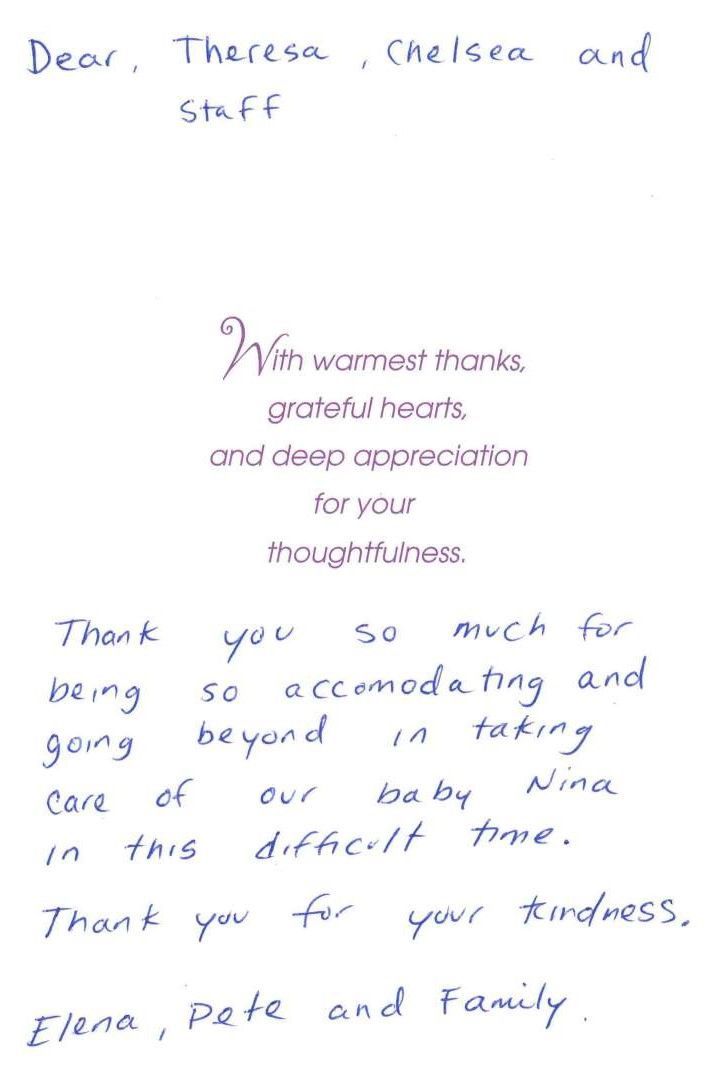 Dear, Theresa, Chelsea and
Staff
With warmest thanks,
grateful hearts,
and deep appreciation
for your
thoughtfulness.
Thank you so much for
being so accomodating and
going beyond in taking
care of our baby Nina
in this difficult time.
Thank you for your kindness.
Elena, Pete and Family.